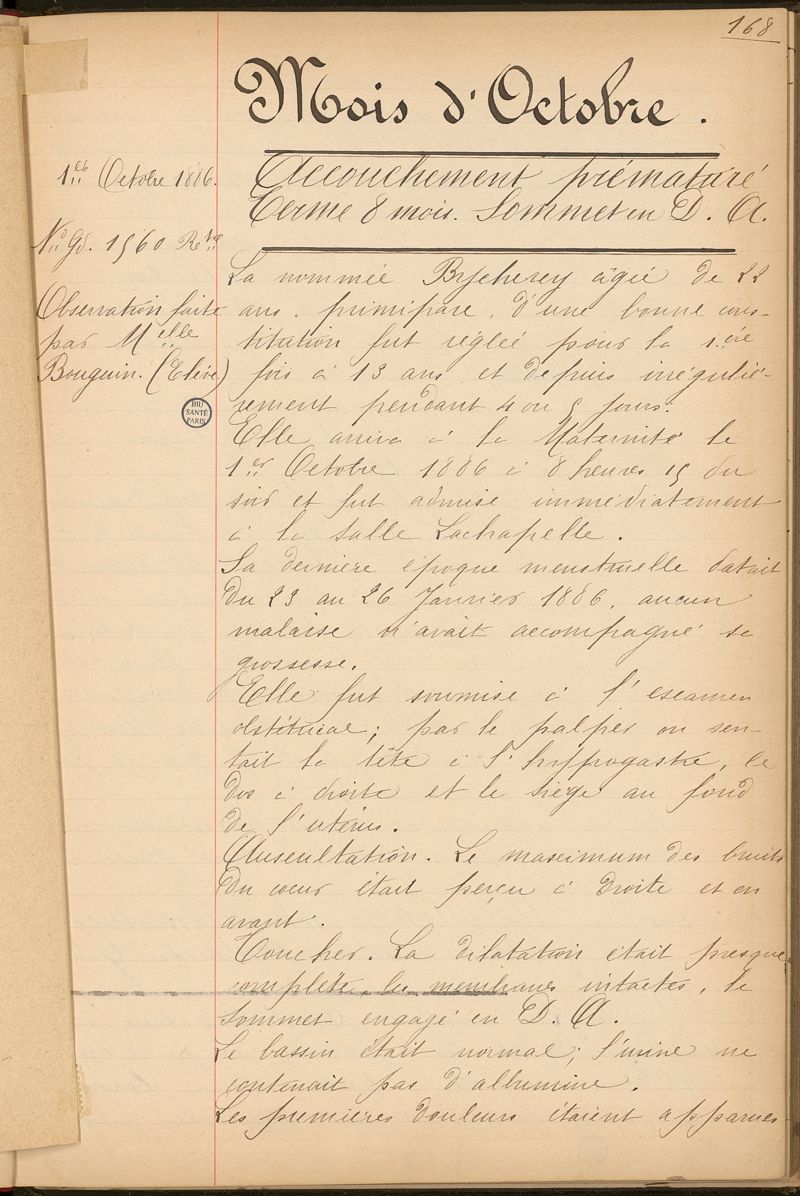 168
Mois d'Octobre.
1er Octobre 1886.
No Gd. 1560 Rtre
Observation faite
par Melle
Bouguin. (Elève)
BIU
SANTÉ
PARIS
Accouchement prématuré
Terme 8 mois. Sommet en D. A.
La nommée âgée de 22
ans. primipare, d'une bonne cons-
titution fut réglée pour la 1ère
fois à 13 ans et depuis irréguliè-
rement pendant 4 ou 5 jours.
Elle arriva à la Maternité le
1er Octobre 1886 à 8 heures 15 du
soir et fut admise immédiatement
à la salle Lachapelle.
Sa dernière époque menstruelle datait
du 23 au 26 Janvier 1886, aucun
malaise n'avait accompagné sa
grossesse.
Elle fut soumise à l'examen
obstétrical; par le palper on sen-
tait la tête à l'hyppogastre, le
dos à droite et le siège au fond
de l'utérus.
Auscultation. Le maximum des bruits
du coeur était perçu à droite et en
avant.
Toucher. La dilatation était presque
complète, les membranes intactes, le
sommet engagé en D. A.
Le bassin était normal; l'urine ne
contenait pas d'albumine.
Les premières douleurs étaient apparues